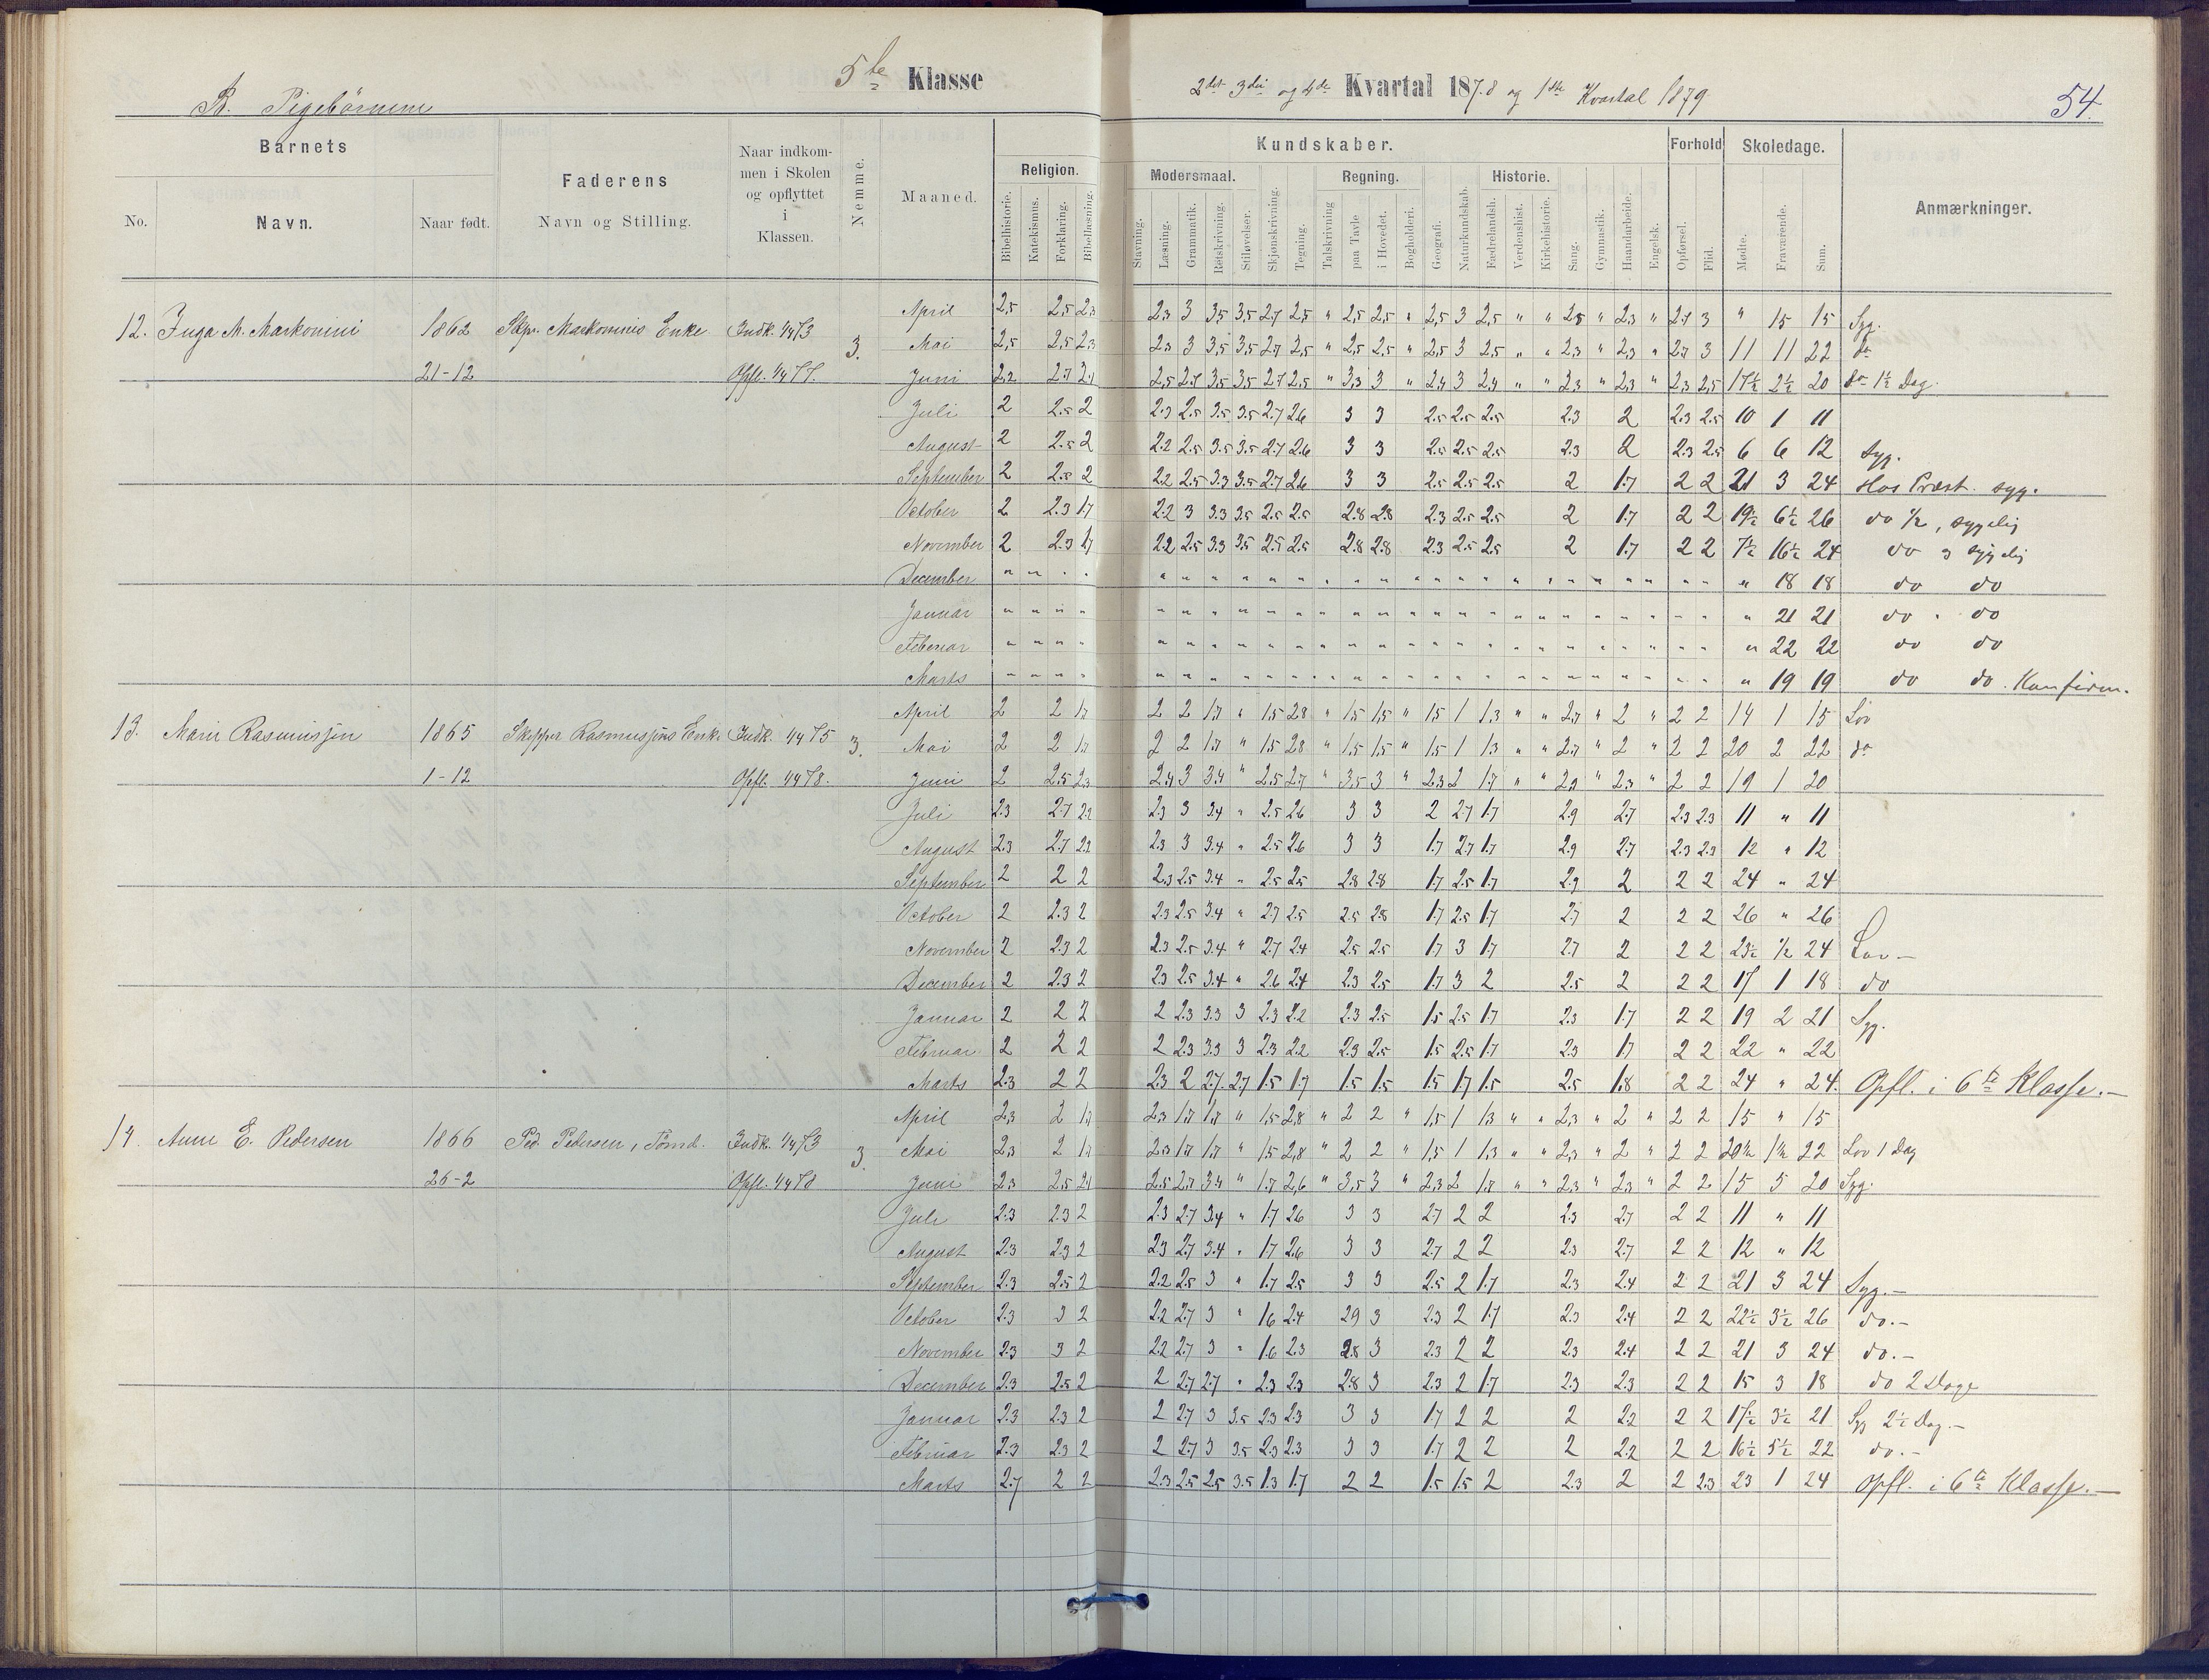 5te Klasse
2det 3die og 4de Kvartal 1878 og 1ste Kvartal 1879
54.
B. Pigebörnene
Barnets
No.
Navn.
Naar født.
Faderens
Navn og Stilling.
Naar indkom-
men i Skolen
og opflyttet
i
Klassen.
Nemme.
Maaned.
Kundskaber.
Religion.
Bibelhistorie.
Katekismus.
Forklaring.
Bibellæsning.
Modersmaal.
Stavning.
Læsning.
Grammatik.
Retskrivning.
Stiløvelser.
Skjønskrivning.
Tegning.
Regning.
Talskrivning
paa Tavle
i Hovedet.
Bogholderi.
Geografi.
Naturkundskab.
Historie.
Fædrelandsh.
Verdenshist.
Kirkehistorie.
Sang.
Gymnastik.
Haandarbeide.
Engelsk.
Forhold
Opførsel.
Flid.
Skoledage.
Mødte.
Fraværende.
Sum.
Anmærkninger.
12. Inga M. Markonini 1862 Skpr. Markoninis Enke Indk. 1/4 73 3.
21-12 Opfl. 1/4 77.
April 2,5 2,5 2,3 2,3 3 3,5 3,5 2,7 2,5 " 2,5 2,5 " 2,5 3 2,5 " " 2,8 " 2,3 " 2,7 3 " 15 15 Syg.
Mai 2,5 2,5 2,3 2,3 3 3,5 3,5 2,7 2,5 " 2,5 2,5 " 2,5 3 2,5 " " 2,3 " 2,3 " 2,7 3 11 11 22 do
Juni 2,2 2,7 2,1 2,5 2,7 3,5 3,5 2,7 2,5 " 3,3 3 " 2,4 3 2,4 " " 2,3 " 2,3 " 2,3 2,5 17½ 2½ 20 do 1½ Dag.
Juli 2 2.5 2 2.3 2.5 3.5 3.5 2.7 2.6 3 3 2.5 2.5 2.5 2.3 2 2.3 2.5 10 1 11
August 2 2.5 2 2.2 2.5 3.5 3.5 2.7 2.6 3 3 2.5 2.5 2.5 2.3 2 2.3 2.5 6 6 12 syg.
September 2 2.5 2 2.2 2.5 3.3 3.5 2.7 2.6 3 3 2.5 2.5 2.5 2 1.7 2 2 21 3 24 Hos Præst. syg.
October 2 2.3 1.7 2.2 3 3.3 3.5 2.5 2.5 2.8 2.8 2.3 2.5 2.5 2 1.7 2 2 19½ 6½ 26 do ½, sygelig
November 2 2.3 1.7 2.2 2.5 3.3 3.5 2.5 2.5 2.8 2.8 2.3 2.5 2.5 2 1.7 2 2 7½ 16½ 24 do 3 sygelig
December " 18 18 do do
Januar " 21 21 do " do
Februar " 22 22 do do
Marts " 19 19 do do. Konfirm.
13. Marie Rasmussen 1865 Skipper Rasmussens Enke Indk. 1/4 75 3.
1-12 Opfl. 1/4 78.
April 2 2 1,7 2 2 1,7 " 1,5 2,8 " 1,5 1,5 " 1,5 1 1,3 " " 2,7 " 2 " 2 2 14 1 15 Lov
Mai 2 2 1,7 2 2 1,7 " 1,5 2,8 " 1,5 1,5 " 1,5 1 1,3 " " 2,7 " 2 " 2 2 20 2 22 do
Juni 2 2,5 2,3 2,4 3 3,4 " 2,5 2,7 " 3,5 3 " 2,3 2 1,7 " " 2,9 " 2,3 " 2 2 19 1 20
Juli 2.3 2.7 2.2 2.3 3 3.4 " 2.5 2.6 3 3 2 2.7 1.7 2.9 2.7 2.3 2.3 11 " 11
August 2.3 2.7 2.2 2.3 3 3.4 " 2.5 2.6 3 3 1.7 2.7 1.7 2.9 2.7 2.3 2.3 12 " 12
September 2 2 2 2.3 2.5 3.4 " 2.5 2.5 2.8 2.8 1.7 2.5 1.7 2.9 2 2 2 24 " 24
October 2 2.3 2 2.3 2.5 3.4 " 2.7 2.5 2.5 2.8 1.7 2.5 1.7 2.7 2 2 2 26 " 26
November 2 2.3 2 2.3 2.5 3.4 " 2.7 2.4 2.5 2.5 1.7 3 1.7 2.7 2 2 2 23½ ½ 24 Lov —
December 2 2.3 2 2.3 2.5 3.4 " 2.6 2.4 2.3 2.5 1.7 3 2 2.5 2 2 2 17 1 18 do
Januar 2 2 2 2 2.3 3.3 3 2.3 2.2 2.3 2.5 1.5 2.5 1.7 2.3 1.7 2 2 19 2 21 Syg.
Februar 2 2 2 2 2.3 3.3 3 2.3 2.2 2.3 2.5 1.5 2.5 1.7 2.3 1.7 2 2 22 " 22
Marts 2.3 2 2 2.3 2 2.7 2.7 1.5 1.7 1.5 1.5 1.5 1.7 1.5 2.5 1.8 2 2 24 " 24. Opfl. i 6te Klasse. —
14. Anne E. Pedersen 1866 Ped. Pedersen, Tömd. Indk. 1/4 73 3.
26-2 Opfl. 1/4 78
April 2,3 2 1,7 2,3 1,7 1,7 " 1,5 2,8 " 2 2 " 1,5 1 1,3 " " 2,3 " 2 " 2 2 15 " 15
Mai 2,3 2 1,7 2,3 1,7 1,7 " 1,5 2,8 " 2 2 " 1,5 1 1,3 " " 2,3 " 2 " 2 2 20½ 1½ 22 Lov 1 Dag
Juni 2,3 2,5 2,1 2,5 2,7 3,4 " 1,7 2,6 " 3,5 3 " 2,3 2 1,7 " " 2,3 " 2,3 " 2 2 15 5 20 Syg.
Juli 2.3 2.3 2 2.3 2.7 3.4 " 1.7 2.6 3 3 2.7 2 2 2.3 2.7 2 2 11 " 11
August 2.3 2.3 2 2.3 2.7 3.4 " 1.7 2.6 3 3 2.7 2 2 2.3 2.7 2 2 12 " 12
September 2.3 2.5 2 2.2 2.5 3 " 1.7 2.5 3 3 2.5 2 1.7 2.3 2.4 2 2 21 3 24 Syg. —
October 2.3 3 2 2.2 2.7 3 " 1.6 2.4 2.9 3 2.3 2 1.7 2.3 2.4 2 2 22½ 3½ 26 do. —
November 2.3 3 2 2.2 2.7 3 " 1.6 2.3 2.8 3 2.3 2 2 2.3 2.4 2 2 21 3 24 do. —
December 2.3 2.5 2 2 2.7 2.7 " 2.3 2.3 2.8 3 2.3 2 1.7 2.3 2.3 2 2 15 3 18 do 2 Dage
Januar 2.3 2.3 2 2 2.7 3 3.5 2.3 2.3 3 3 1.7 2 2 2 2.2 2 2 17½ 3½ 21 Syg 2½ Dag. —
Februar 2.3 2.3 2 2 2.7 3 3.5 2.3 2.3 3 3 1.7 2 2 2 2.2 2 2 16½ 5½ 22 do. —
Marts 2.7 2 2 2.3 2.5 2.5 3.5 1.3 1.7 2 2 1.5 1.5 2 2.3 2 2 2.3 23 1 24 Opfl. i 6te Klasse. —